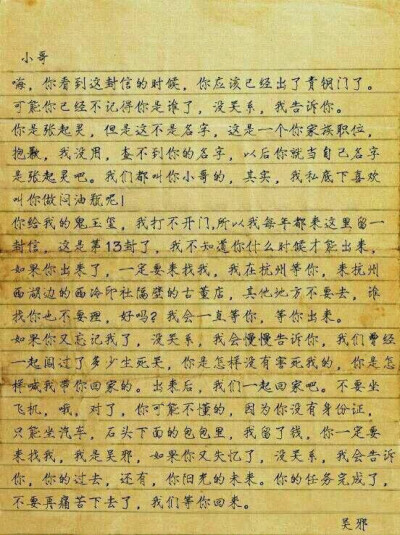 小哥
嗨，你看到这封信的时候，你应该已经出了青铜门了。
可能你已经不记得你是谁了，没关系，我告诉你。
你是张起灵，但是这不是名字，这是一个你家族职位，
抱歉，我没用，查不到你的名字，以后你就当自己名字
是张起灵吧。我们都叫你小哥的，其实，我私底下喜欢
叫你做闷油瓶呢！
你给我的鬼玉玺，我打不开门，所以我每年都来这里留一
封信，这是第13封了，我不知道你什么时候才能出来，
如果你出来了，一定要来找我，我在杭州等你，来杭州
西湖边的西泠印社隔壁的古董店，其他地方不要去，谁
找你也不要理，好吗？我会一直等你，等你出来。
如果你又忘记我了，没关系，我会慢慢告诉你，我们曾经
一起闯过了多少生死关，你是怎样没有害死我的，你是怎
样喊我带你回家的。出来后，我们一起回家吧。不要坐
飞机，哦，对了，你可能不懂的，因为你没有身份证，
只能坐汽车，石头下面的包包里，我留了钱，你一定要
来找我，我是吴邪，如果你又失忆了，没关系，我会告诉
你，你的过去，还有，你阳光的未来。你的任务完成了，
不要再痛苦下去了，我们等你回来。
吴邪